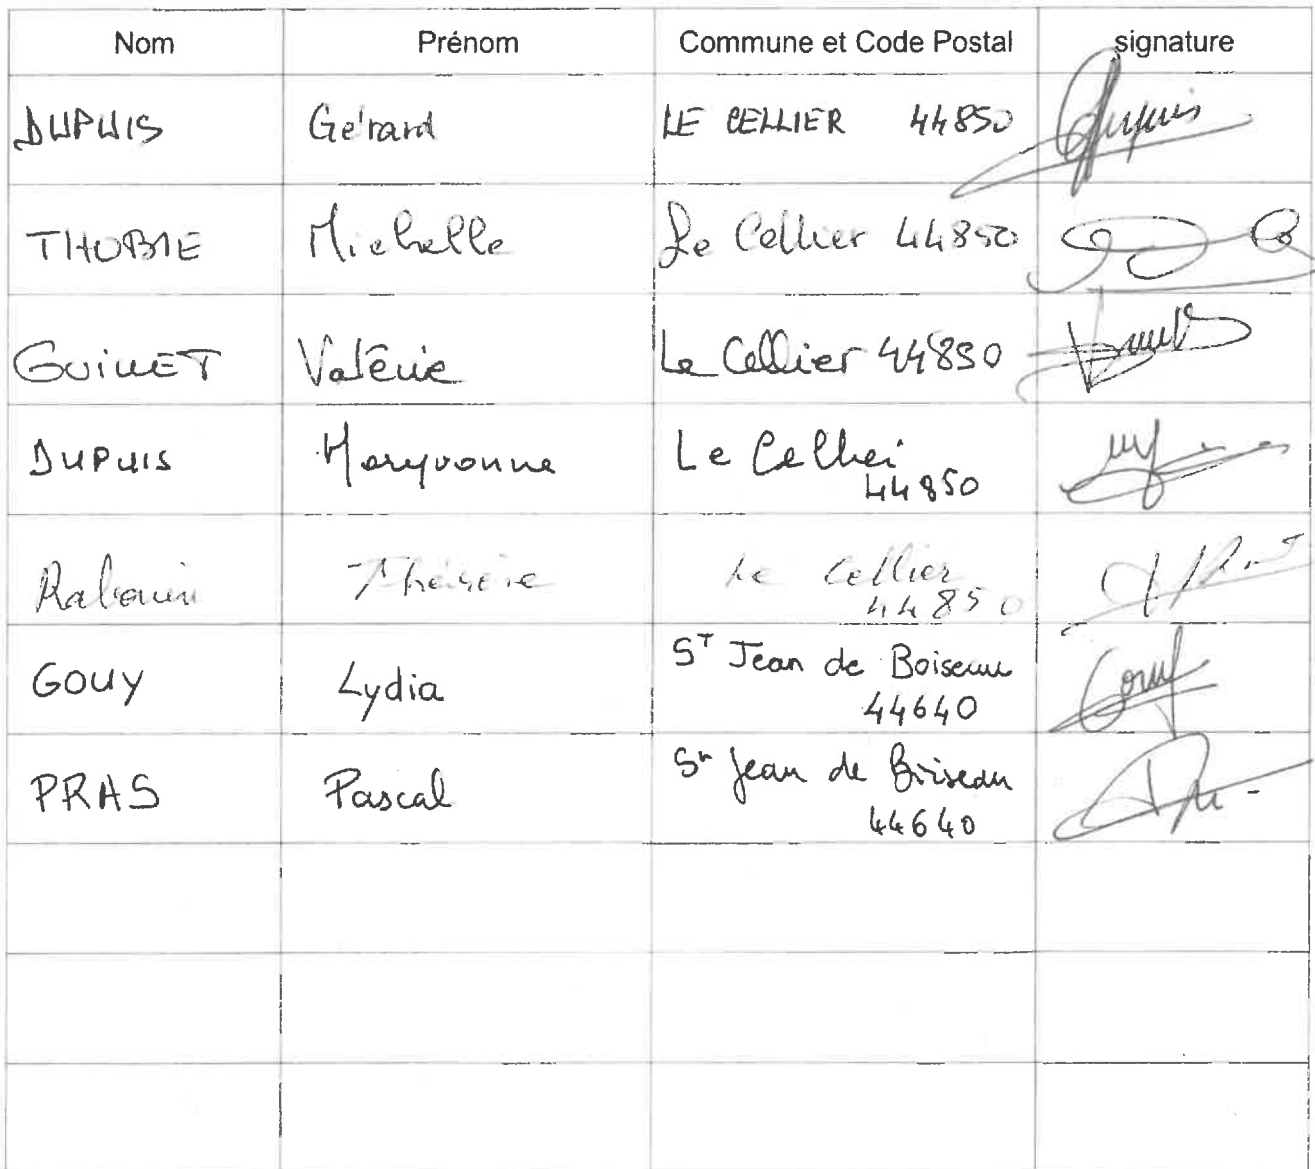 Nom Prénom Commune et Code Postal signature
DUPUIS Gérard LE CELLIER 44850
THOBIE Michelle Le Cellier 44850
GUILLET Valérie Le Cellier 44850
DUPUIS Maryvonne Le Cellier
44850
Thérèse Le Cellier
44850
GOUY Lydia ST Jean de Boiseau
44640
PRAS Pascal St Jean de Boiseau
44640